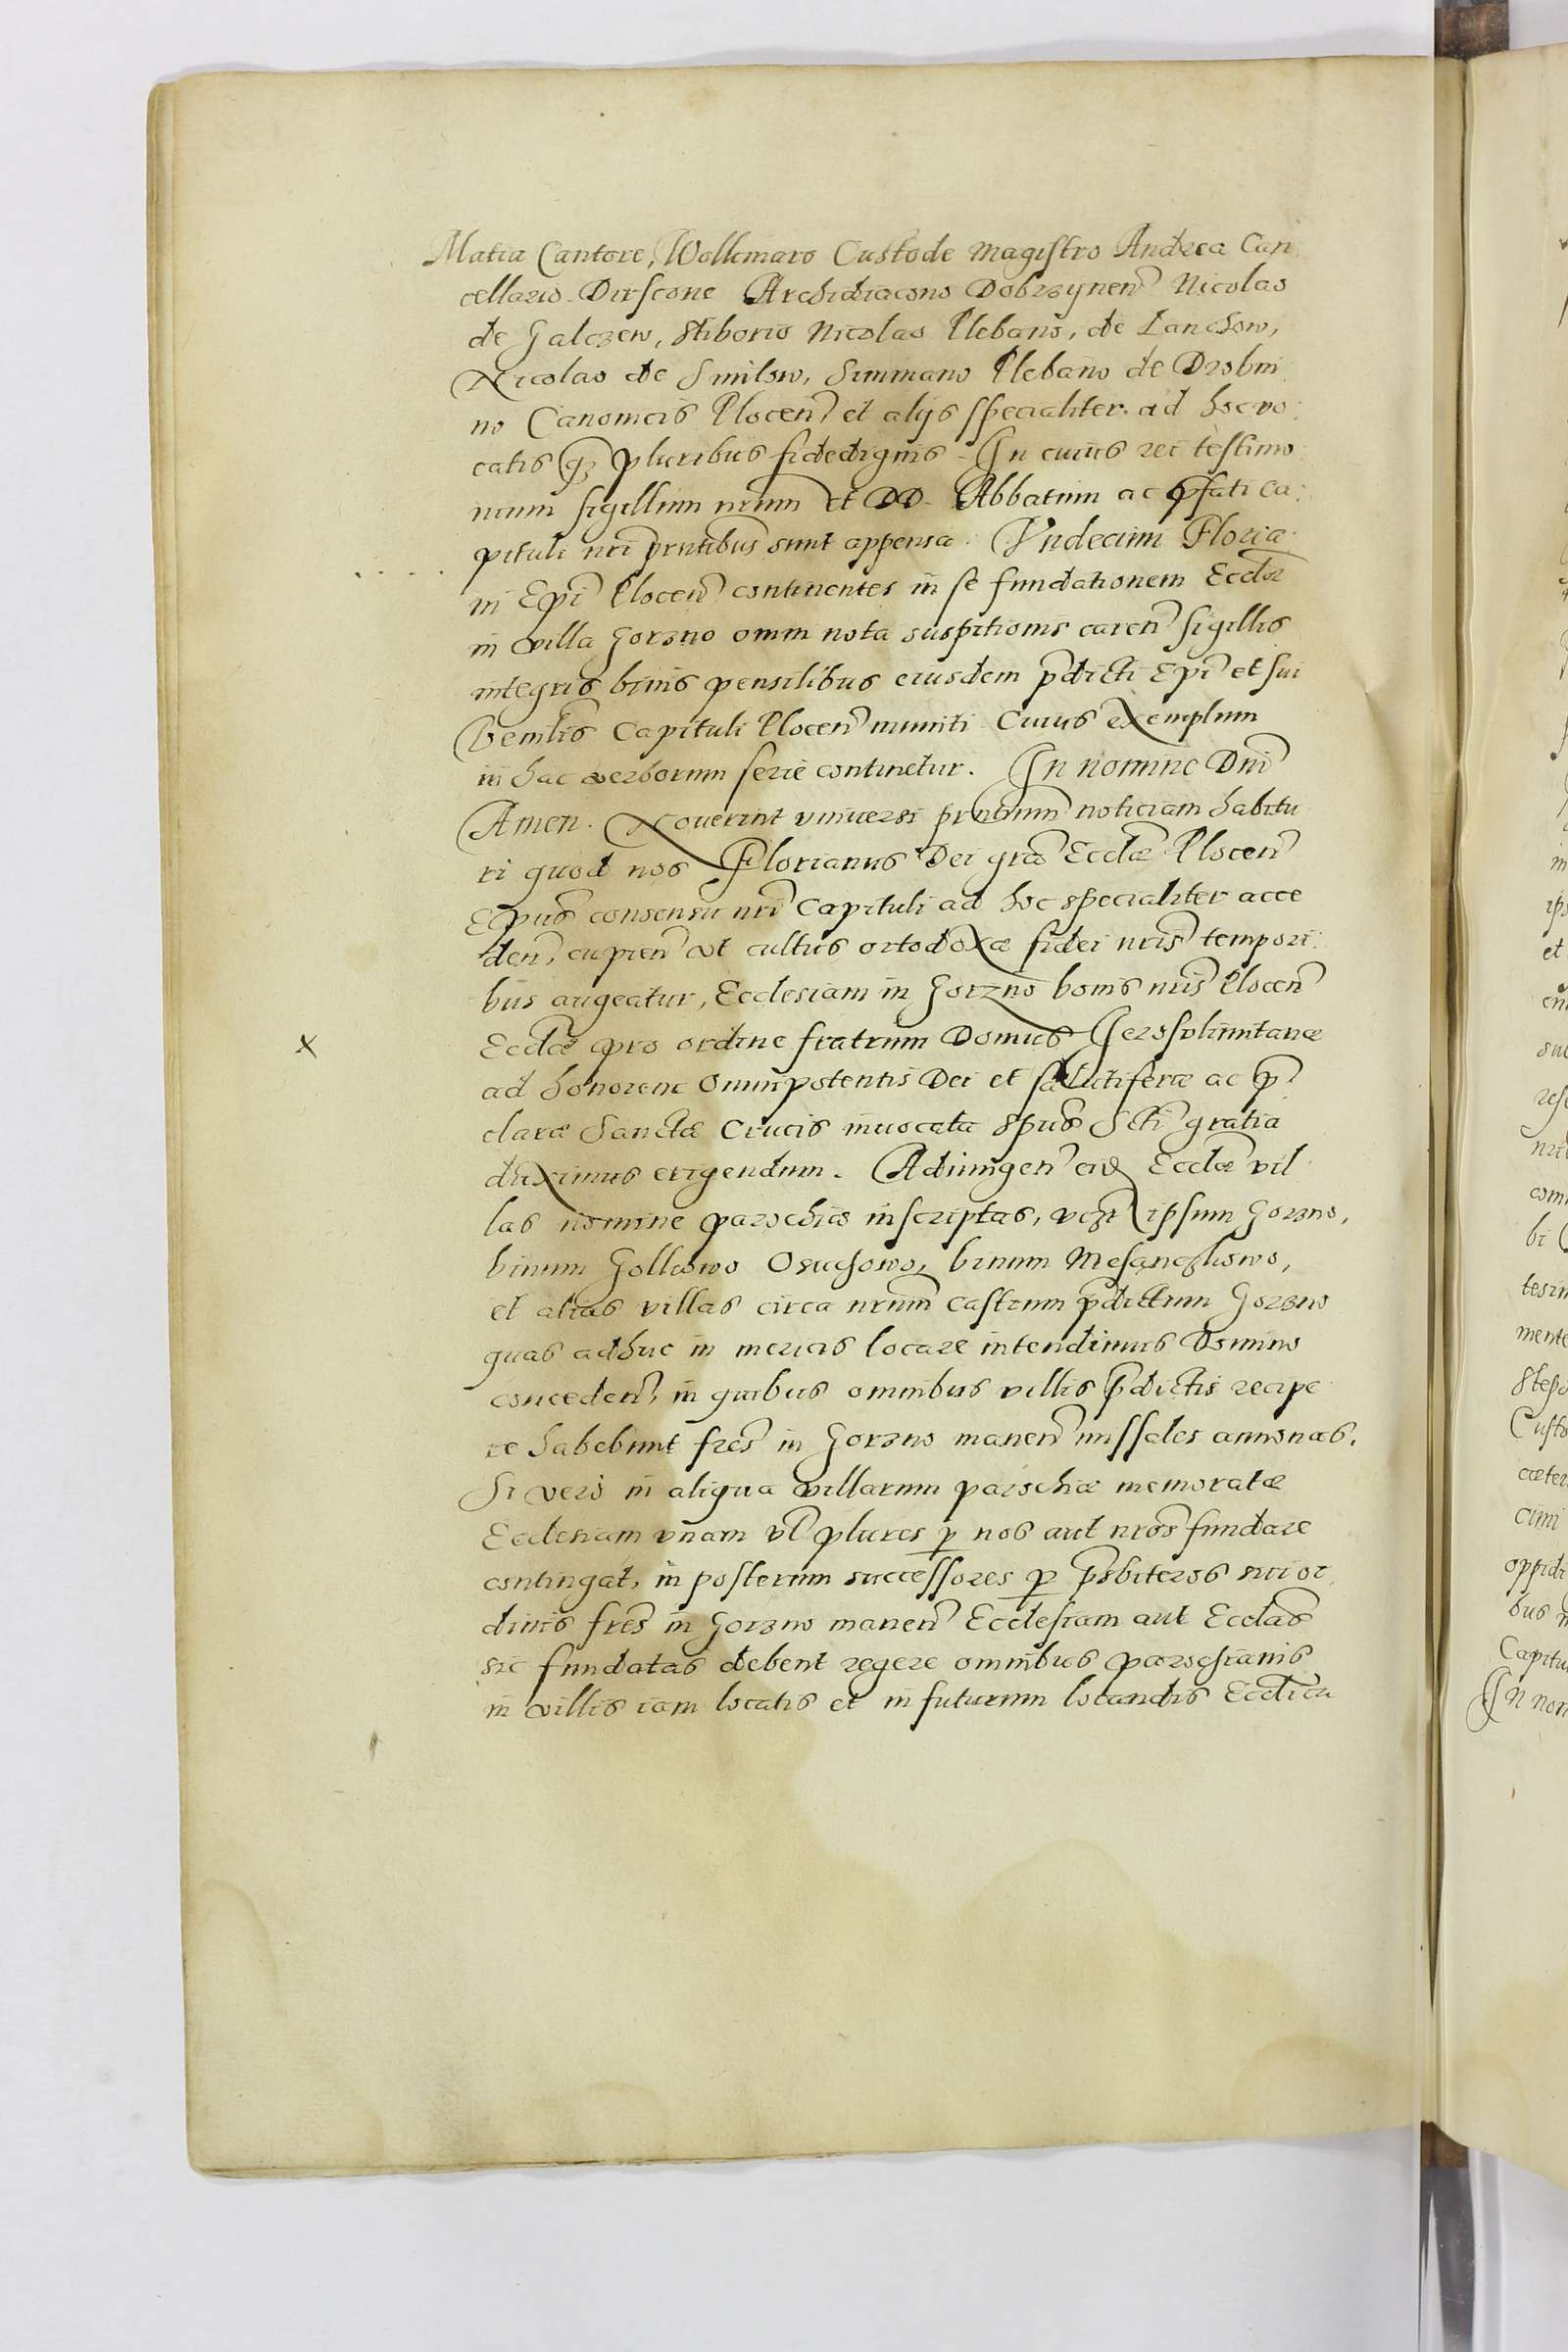 Matia Cantore, Wollimaro Custode Magistro Andrea Can
cellario. Dirscone Archidiacono Dobrzynen̄ Nicolao
de Galczew, Stiborio Nicolao Plebano, de Lanchow,
Nicolao de Smilow, Simmano Plebano de Drobni
no Canonicis Plocen̄ et alijs specialiter ad hoc vo:
catis qz pluribus fidedignis. In cuius rei testimo
nium sigillum nrum et DD. Abbatum ac p̄fati Ca:
pituli nri p̄ntibus sunt appensa. Vndecimi Floria
ni Ep̄i Plocen̄ continentes in se fundationem Eccl̄æ
in villa Gorzno omni nota suspitionis caren̄ sigillis
integris binis pensilibus eiusdem p̄dicti Ep̄i et sui
Ven̄lis Capituli Plocen̄ muniti Cuius exemplum
in hac verborum serie continetur. In nomine Dn̄i
Amen. Nouerint vniuersi pn̄tium noticiam habitu
ri quod nos Florianus Dei gr̄a Eccl̄æ Plocen̄
Ep̄us consensu nr̄i Capituli ad hoc specialiter acce
den̄, cupien̄ vt cultus ortodoxæ fidei nr̄is tempori:
bus augeatur, Ecclesiam in Gorzno bonis nr̄is Plocen̄
x Eccl̄æ pro ordine fratrum Domus Jerosolimitanæ
ad honorem Omnipotentis Dei et salutiferæ ac p̄
claræ Sanctæ Crucis inuocata Sp̄us Scti gratia
duximus erigendum. Adiungen̄ Eccl̄æ vil
las nomine parochiæ inscriptas, vczt ipsum Gorzno,
binum Gollkowo Osuchowo, binum Mesanczkowo,
et alias villas circa nrum castrum p̄dictum Gorzno
quas adhuc in mericis locare intendimus Domino
conceden̄, in quibus omnibus villis p̄dictis recipe
re habebunt fr̄es in Gorzno manen̄ missales annonas.
Si vero in aliqua villarum parochiæ memoratæ
Ecclesiam vnam vl̄ plures p̱ nos aut nr̄os fundare
contingat, in posterum successores p̱ p̄sbiteros sui or
dinis fr̄es in Gorzno manen̄ Ecclesiam aut Eccl̄as
sic fundatas debent regere omnibus parochianis
in villis iam locatis et in futurum locandis
in
ips
et
sui
com
bi
mente
cimi
oppidi
bus
Capitu
In nom